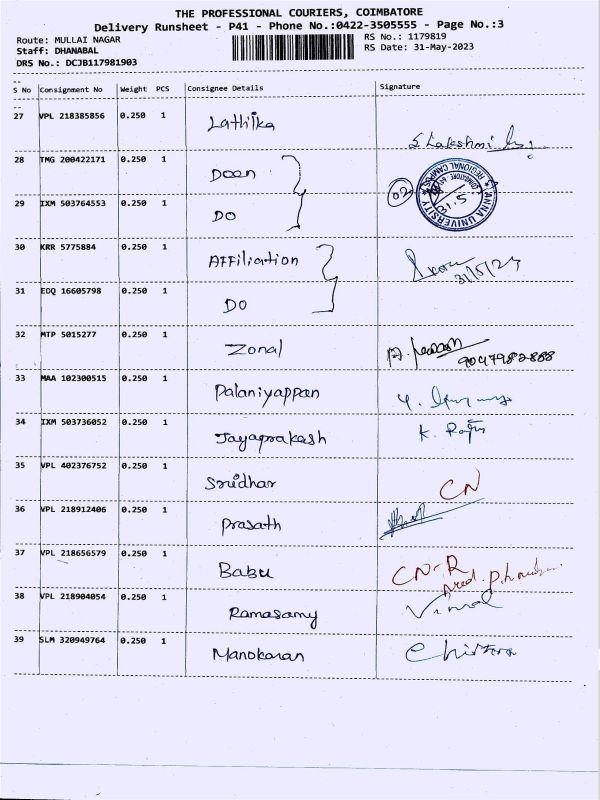 THE PROFESSIONAL COURIERS, COIMBATORE
Delivery Runsheet - P41 - Phone No.:0422-3505555 - Page No.:3
Route: MULLAI NAGAR RS No.: 1179819
Staff: DHANABAL RS Date: 31-May-2023
DRS No.: DCJB117981903
S No Consignment No Weight PCS Consignee Details Signature
27 VPL 218385856 0.250 1 Lathika S. Lakshmi
28 TMG 200422171 0.250 1 Deen
29 IXM 503764553 0.250 1 DO 02 ANNA UNIVERSITY REGIONAL CAMPUS COIMBATORE 31.5
30 KRR 5775884 0.250 1 Affiliation 31/5/23
31 EOQ 16605798 0.250 1 DO
32 MTP 5015277 0.250 1 Zonal 9047982888
33 MAA 102300515 0.250 1 Palaniyappan
34 IXM 503736052 0.250 1 Jayaprakash K. Raju
35 VPL 402376752 0.250 1 Sridhar CN
36 VPL 218912406 0.250 1 Prasath
37 VPL 218656579 0.250 1 Babu CN-R
38 VPL 218904054 0.250 1 Ramasamy Vimal
39 SLM 320949764 0.250 1 Manokaran Chitra